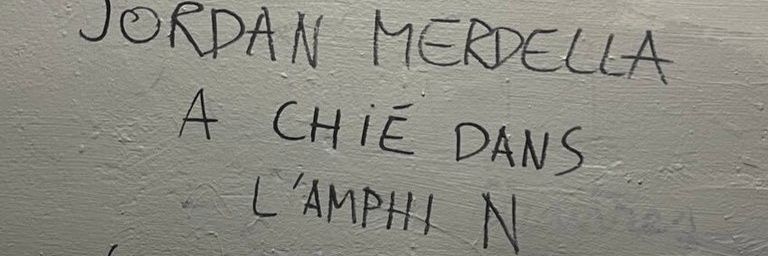 JORDAN MERDELLA
A CHIÉ DANS
L'AMPHI N